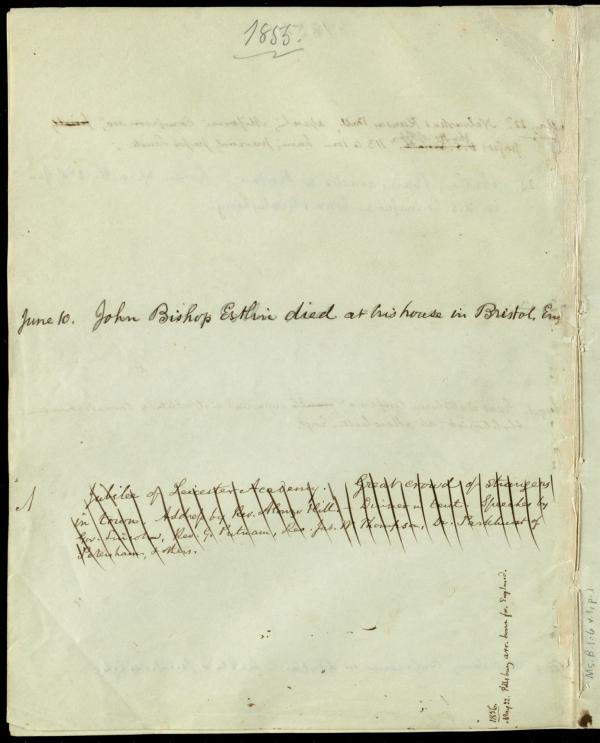 1855.
June 10. John Bishop Estlin died at his house in Bristol, Eng
Jubilee of Leicester Academy. Great crowd of strangers
in town. Address by Rev. Alonzo Hill. Dinner in tent. Speeches by
Gov. Lincoln, Rev. G. Putnam, Rev. Jas. W. Thompson, Dr. Parkhurst of
Petersham, & others.
1856.
May 22. Pillsbury arr. home fr. England.
Ms. B. 1. 6 v. 1, p. 1